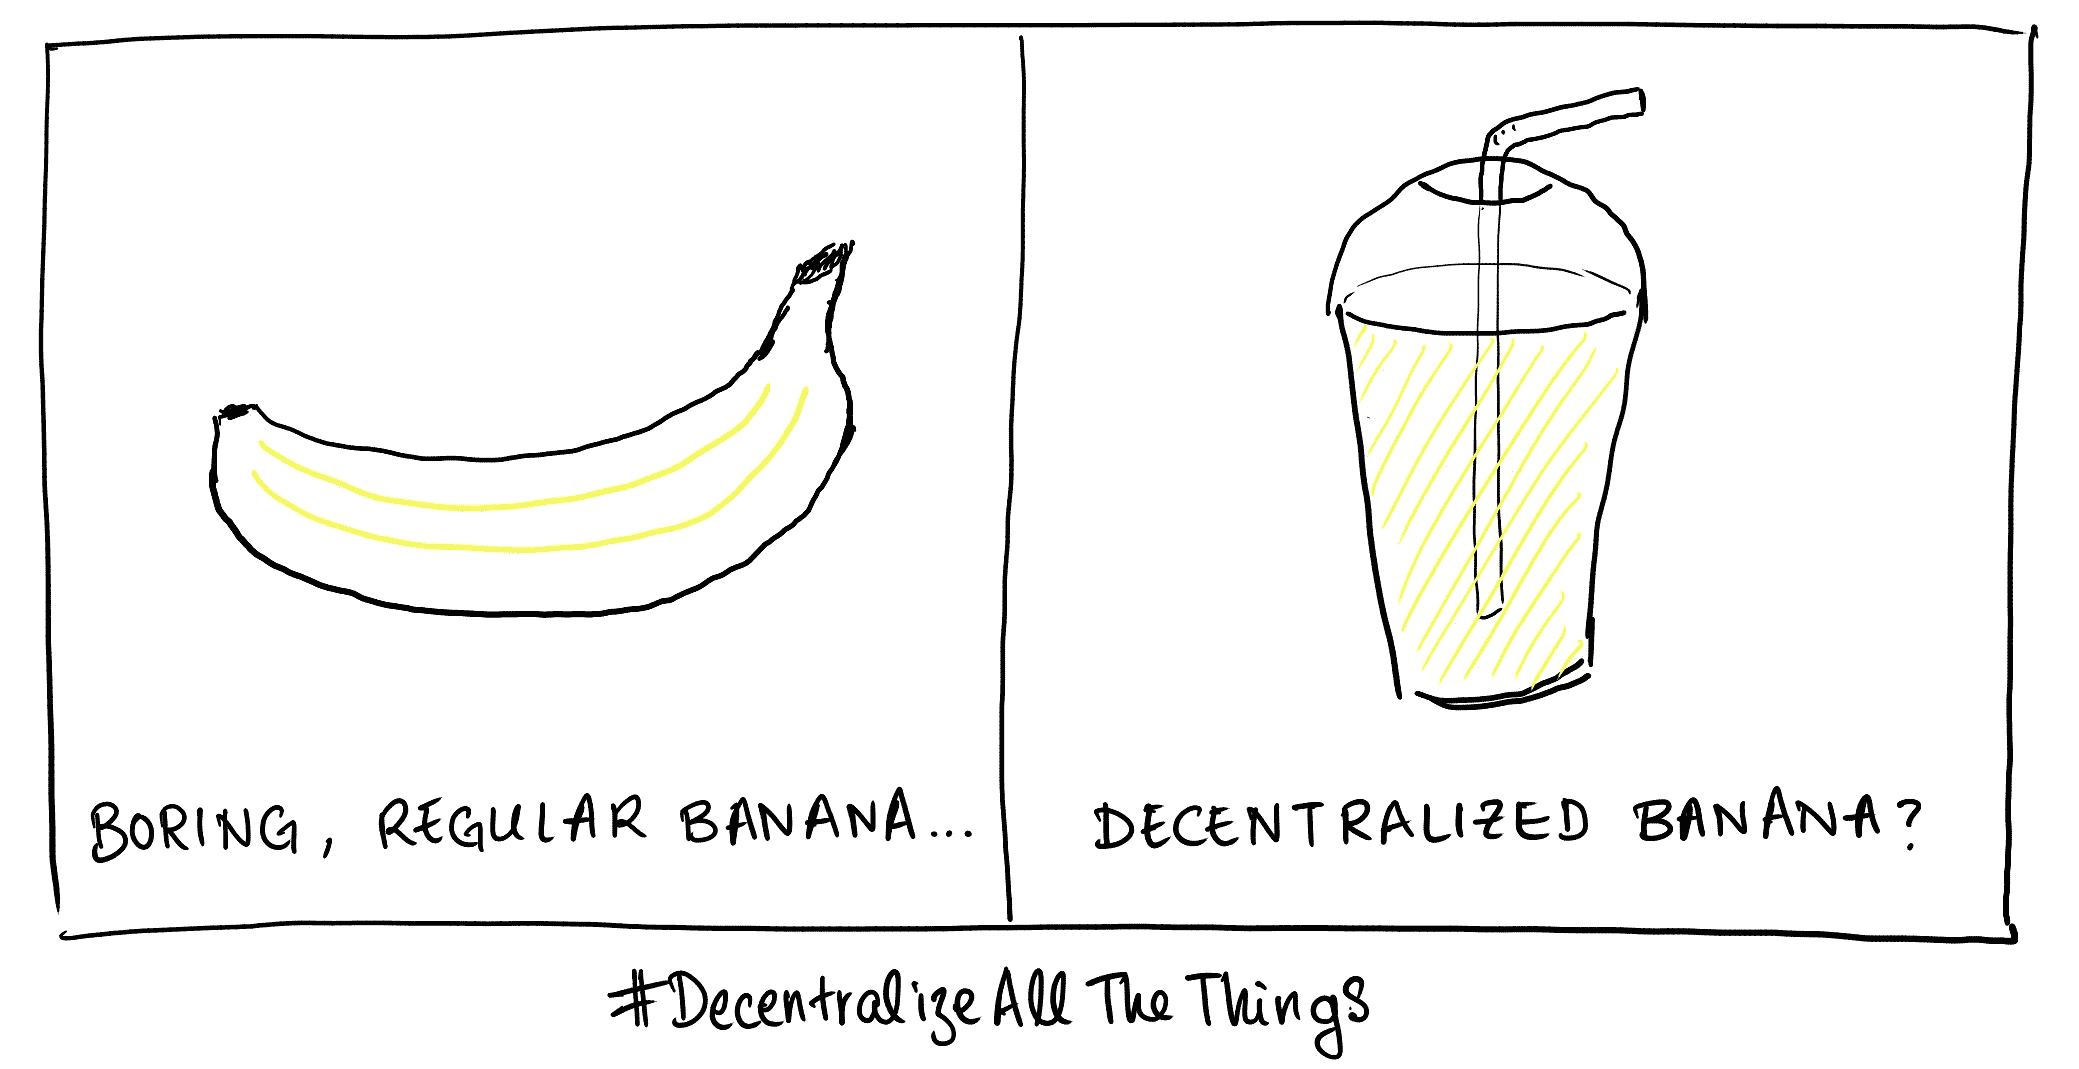 BORING, REGULAR BANANA...
DECENTRALIZED BANANA?
#DecentralizeAllTheThings